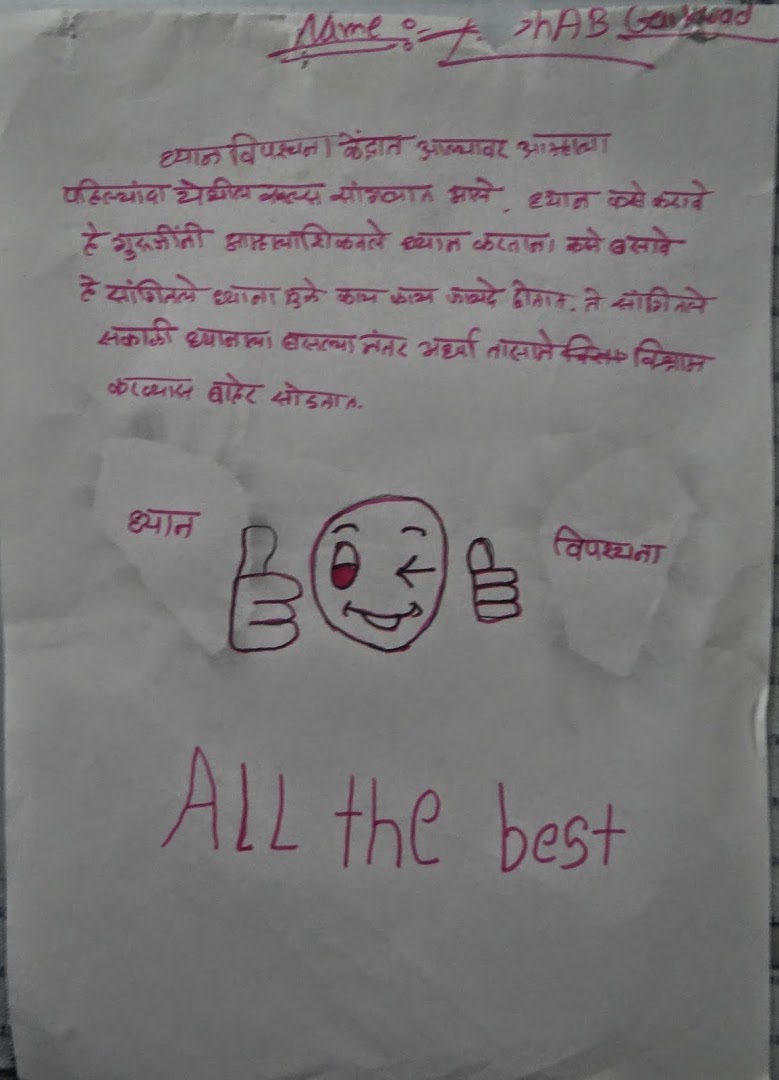 Name :-
ध्यान विपश्यना केंद्रात आल्यावर आम्हाला
पहिल्यांदा येथील सांगण्यात आले. ध्यान कसे करावे
हे गुरुजींनी आम्हालाशिकवले ध्यान करताना कसे बसावे
हे सांगितले ध्याना मुळे काय काय फायदे होतात. ते सांगितले
सकाळी ध्यानाला बसल्या नंतर अर्ध्या तासाने विश्राम
करण्यास बाहेर सोडतात.
ध्यान
विपश्यना
ALL the best